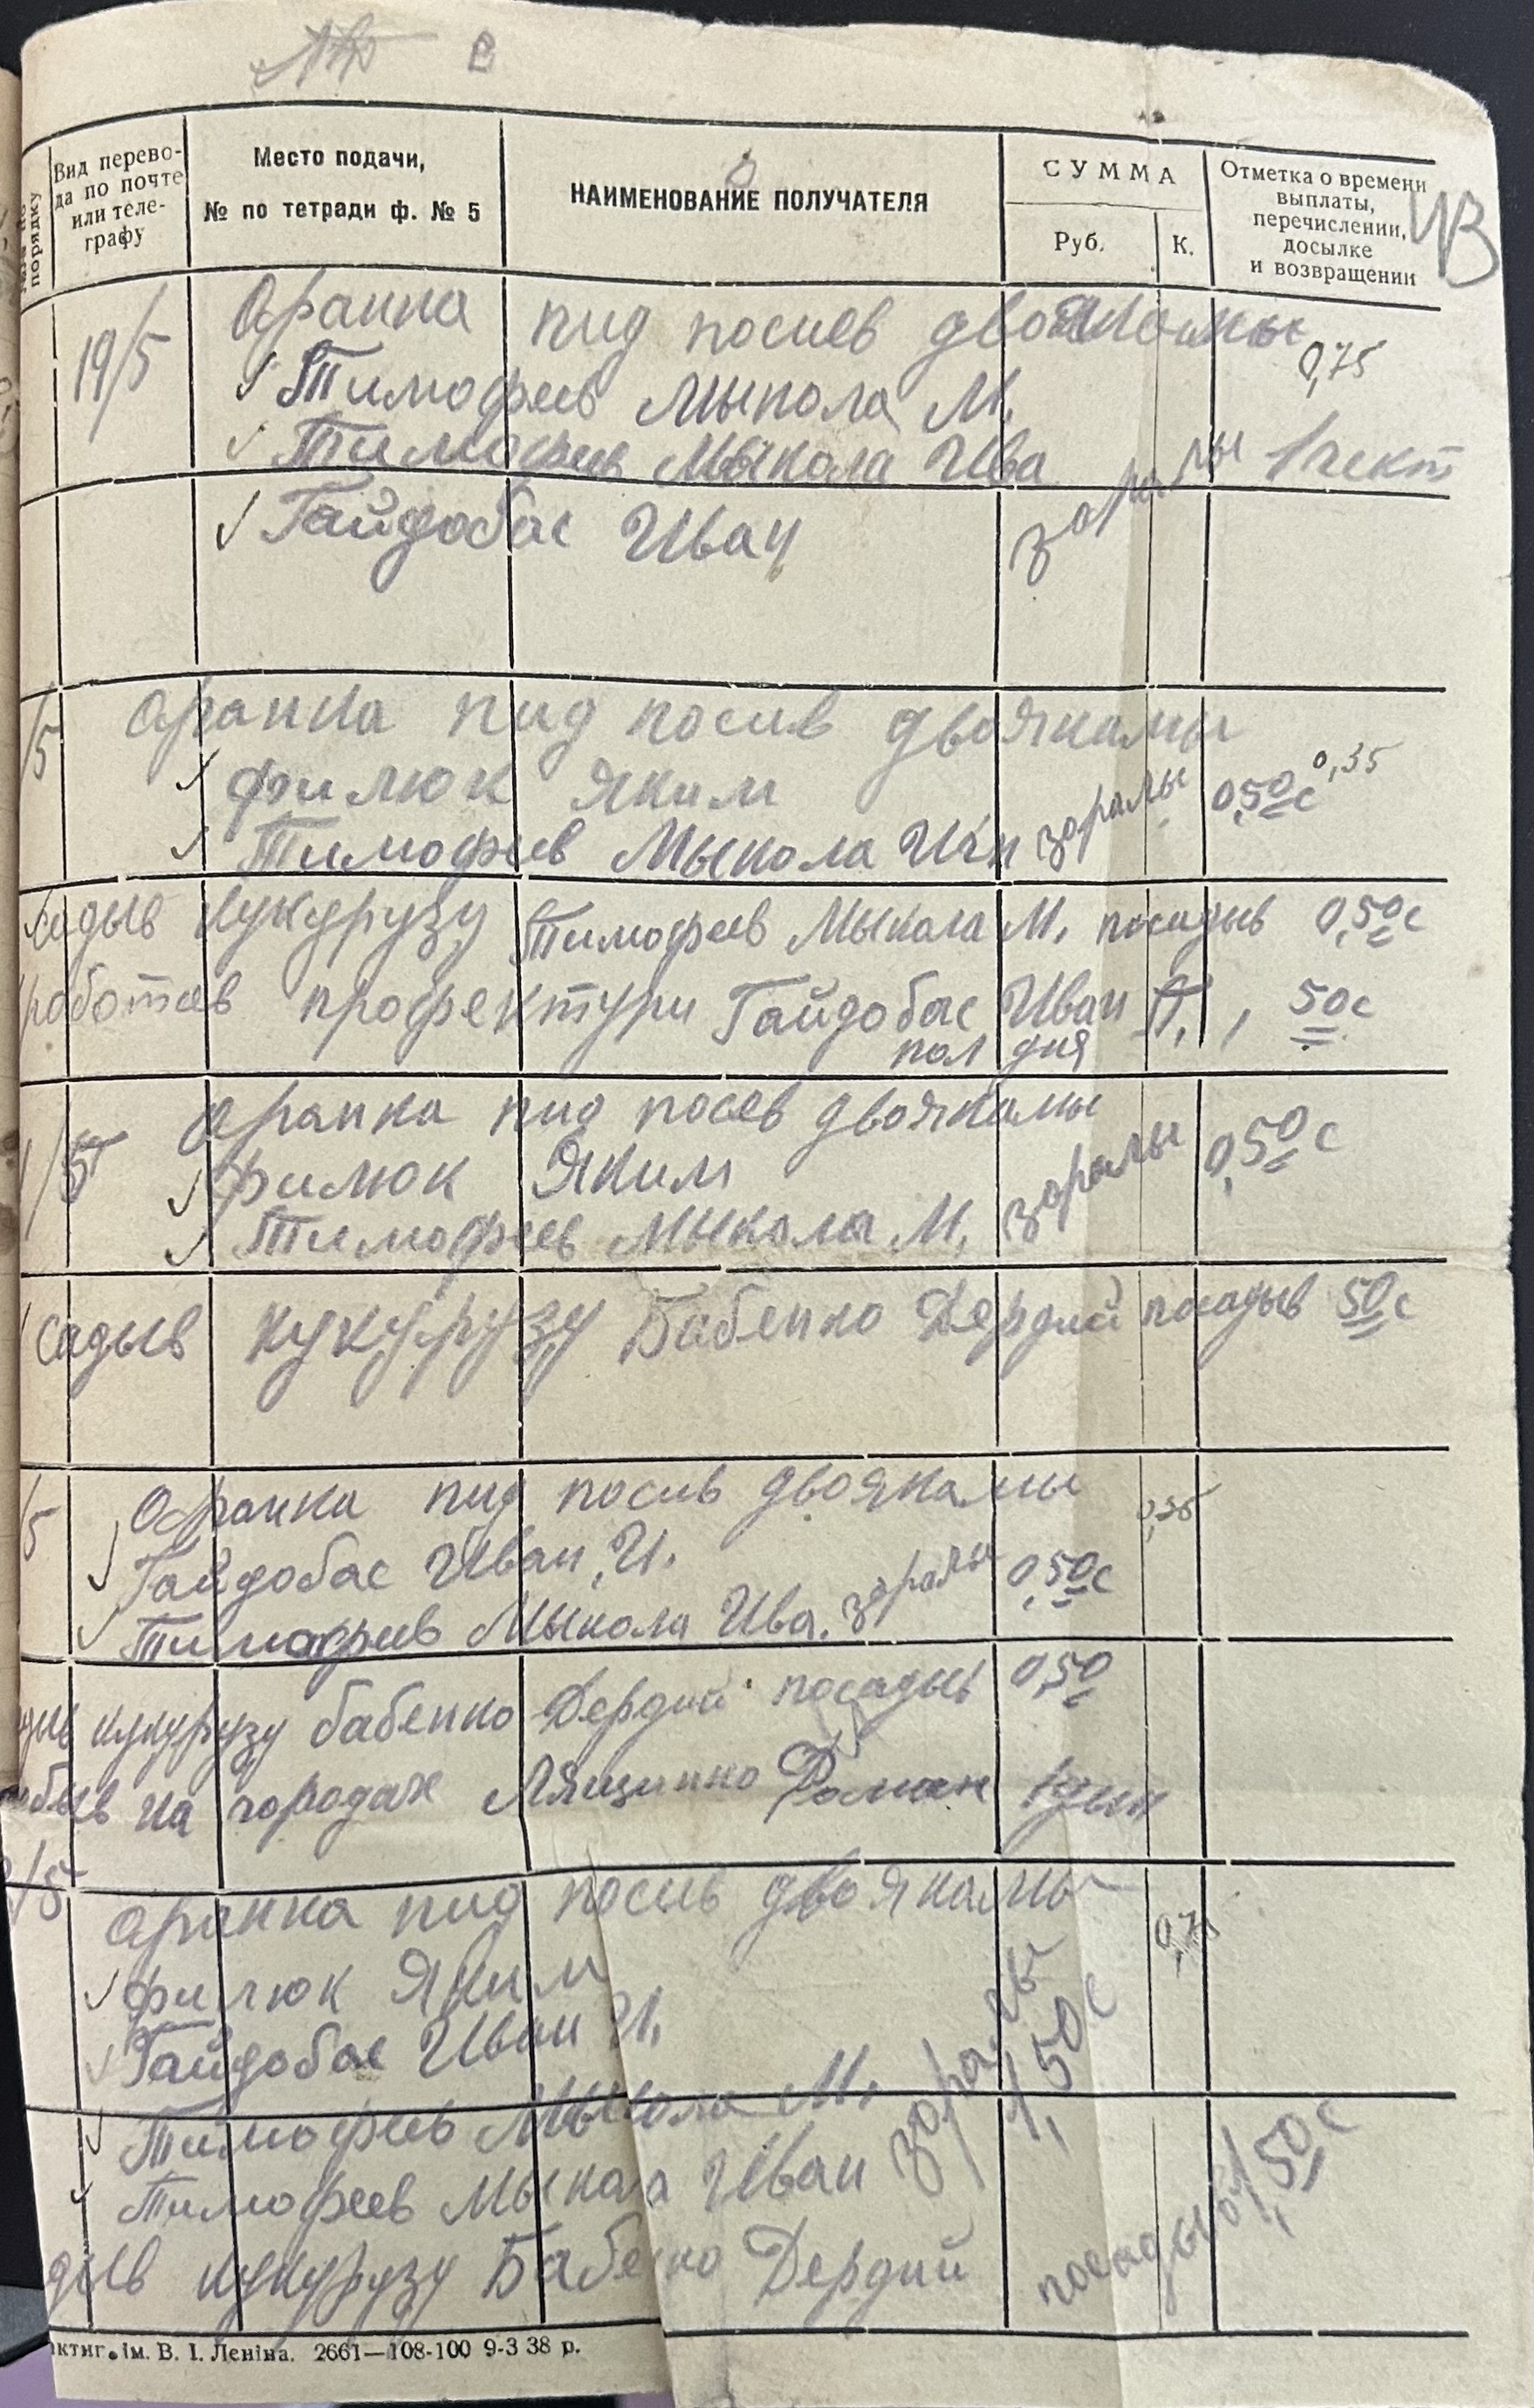 В
порядку
Вид перево-
да по почте
или теле-
графу
Место подачи,
№ по тетради ф. № 5
НАИМЕНОВАНИЕ ПОЛУЧАТЕЛЯ
СУММА
Руб.
К.
Отметка о времени
выплаты,
перечислении,
досылке
и возвращении
19/5 Оранка пид посиев двоякамы
0,75
✓ Тимофеев Мыкола М.
✓ Тимофеев Мыкола Ива заралы 1 гект
✓ Гайдобас Иван
/5 Оранка пид посив двоякамы
✓ Филюк Яким 0,50с 0,35
✓ Тимофеев Мыкола Ив заралы
садыв кукурузу Тимофеев Мыкола М. посадыв 0,50с
работав профектури Гайдобас Иван , 50с
пол дня
/5 Оранка пид посев двоякамы
✓ Филюк Яким заралы 0,50с
✓ Тимофеев Мыкола М.
Садыв кукурузу Бабенко Дердий посадыв 50с
/5 Оранка пид посив двоякамы
0,35
✓ Гайдобас Иван И.
✓ Тимофеев Мыкола Ива. заралы 0,50с
дыв кукурузу бабенко Дердий посадыв 0,50
обыв на городах Лящинко Роман 1 дын
/5 Оранка пид посив двоякамы
✓ Филюк Яким
✓ Гайдобас Иван И.
✓ Тимофеев Мыкола М. заралы 1,50с
✓ Тимофеев Мыкола Иван
дыв кукурузу Бабенко Дердий посадыв 1,50с
ім. В. І. Леніна. 2661—108-100 9-3 38 р.